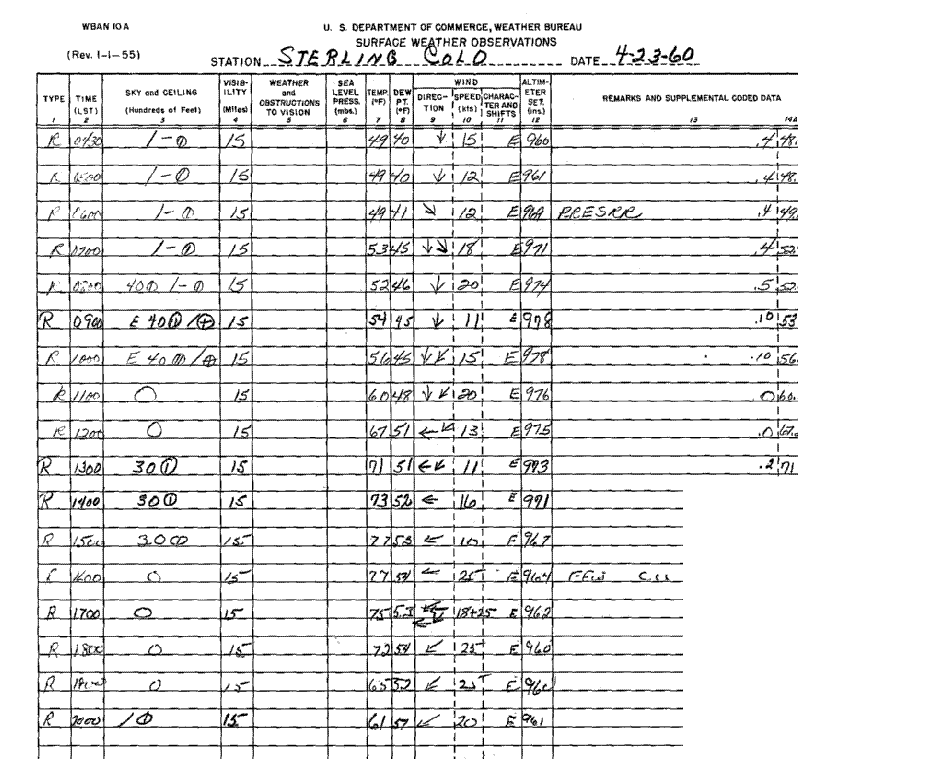 WBAN 10A
U. S. DEPARTMENT OF COMMERCE, WEATHER BUREAU
(Rev. 1-1-55)
SURFACE WEATHER OBSERVATIONS
STATION STERLING COLO DATE 4-23-60
TYPE TIME (LST) SKY and CEILING (Hundreds of Feet) VISIBILITY (Miles) WEATHER and OBSTRUCTIONS TO VISION SEA LEVEL PRESS. (mbs.) TEMP. (°F) DEW PT. (°F) WIND DIRECTION SPEED (kts) CHARACTER AND SHIFTS ALTIMETER SET. (ins) REMARKS AND SUPPLEMENTAL CODED DATA
1 2 3 4 5 6 7 8 9 10 11 12 13 14A
R 0430 /-⦶ 15 49 40 ↓ 15 E 960 .4 48.
R 0500 /-⦶ 15 49 40 ↓ 12 E 961 .4 48.
R 0600 /-⦶ 15 49 41 ↘ 12 E PRESRR .4 49.
R 0700 /-⦶ 15 53 45 ↓↘ 18 E 971 .4 52
R 0800 40⦶ /-⦶ 15 52 46 ↓ 20 E 974 .5 52.
R 0900 E 40⦶ /⊕ 15 54 45 ↓ 11 E 978 .10 53
R 1000 E 40⦶ /⊕ 15 56 45 ↓↙ 15 E 978 .10 56
R 1100 ○ 15 60 48 ↓↙ 20 E 976 0 60.
R 1200 ○ 15 67 51 ←↙ 13 E 975 .0 67.
R 1300 30⦶ 15 71 51 ←↙ 11 E 973 .2 71
R 1400 30⦶ 15 73 52 ← 16 E 971
R 1500 30⦶ 15 77 53 ↙ 10 E 967
R 1600 ○ 15 77 54 ← 25 E 964 FEW CU
R 1700 ○ 15 75 53 18+25 E 962
R 1800 ○ 15 72 54 ↙ 25 E 960
R 1900 ○ 15 65 52 ↙ 25 E 960
R 2000 /⦶ 15 61 57 ↙ 20 E 961